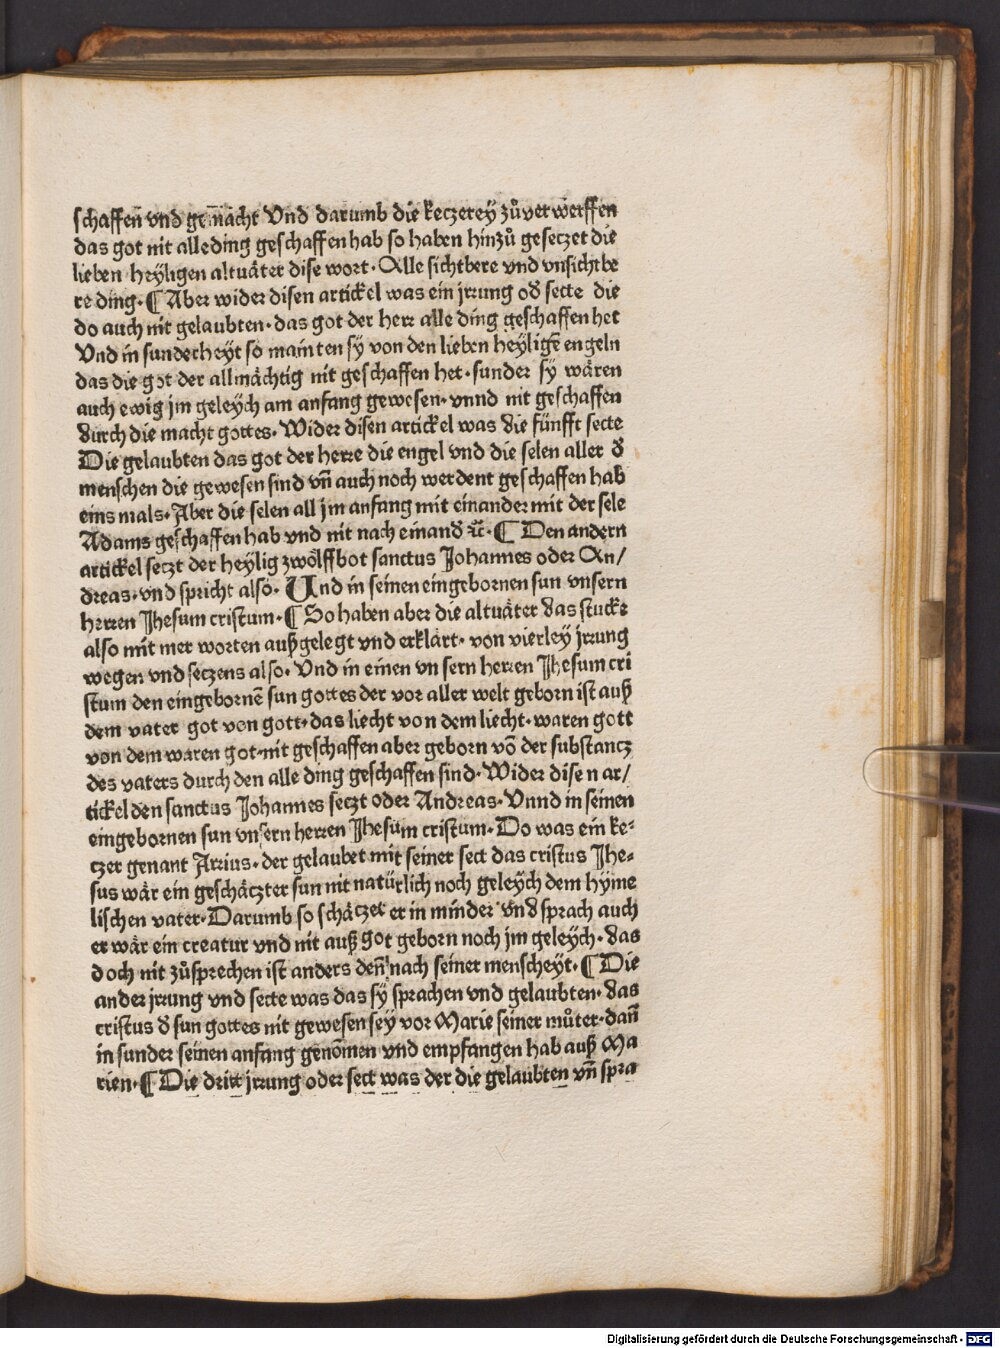 schaffen̄ vnd gem̄acht Vnd darumb die keczerey zůverwerffen
das got nit alleding geschaffen hab so haben hinzů geseczet die
lieben heyligen altuäter dise wort. Alle sichtbere vnd vnsichtbe
re ding. ¶ Aber wider disen artickel was ein jrrung od̄ secte die
do auch nit gelaubten. das got der herr alle ding geschaffen het
Vnd in sunderheyt so mainten sy von den lieben heyligē engeln
das die got der allmächtig nit geschaffen het. sunder sy wären
auch ewig jm geleych am anfang gewesen. vnnd nit geschaffen
durch die macht gottes. Wider disen artickel was die fünfft secte
Die gelaubten das got der herre die engel vnd die selen aller d̄
menschen die gewesen sind vn̄ auch noch werdent geschaffen hab
eins mals. Aber die selen all jm anfang mit einander mit der sele
Adams geschaffen hab vnd nit nach einand̄ ꝛc̄. ¶ Den andern
artickel seczt der heylig zwölffbot sanctus Johannes oder An/
dreas. vnd spricht also. Vnd in seinen eingebornen sun vnsern
herren Jhesum cristum. ¶ So haben aber die altuäter das stucke
also mit mer worten außgelegt vnd erklärt. von vierley jrrung
wegen vnd seczens also. Vnd in einen vnsern herren Jhesum cri
stum den eingebornē sun gottes der vor aller welt geborn ist auß
dem vater got von gott. das liecht von dem liecht. waren gott
von dem waren got. nit geschaffen aber geborn vō der substancz
des vaters durch den alle ding geschaffen sind. Wider disen ar/
tickel den sanctus Johannes seczt oder Andreas. Vnnd in seinen
eingebornen sun vnsern herren Jhesum cristum. Do was ein ke-
czer genant Arrius. der gelaubet mit seiner sect das cristus Jhe-
sus wär ein geschäczter sun nit natürlich noch geleych dem hyme
lischen vater. Darumb so schäczet er in minder vnd sprach auch
er wär ein creatur vnd nit auß got geborn noch jm geleych. das
doch nit zůsprechen ist anders den̄ nach seiner menscheyt. ¶ Die
ander jrrung vnd secte was das sy sprachen vnd gelaubten. das
cristus d̄ sun gottes nit gewesen sey vor Marie seiner můter. dan̄
in sunder seinen anfang genōmen vnd empfangen hab auß Ma
rien. ¶ Die dritt jrrung oder sect was der die gelaubten vn̄ spra
Digitalisierung gefördert durch die Deutsche Forschungsgemeinschaft - DFG